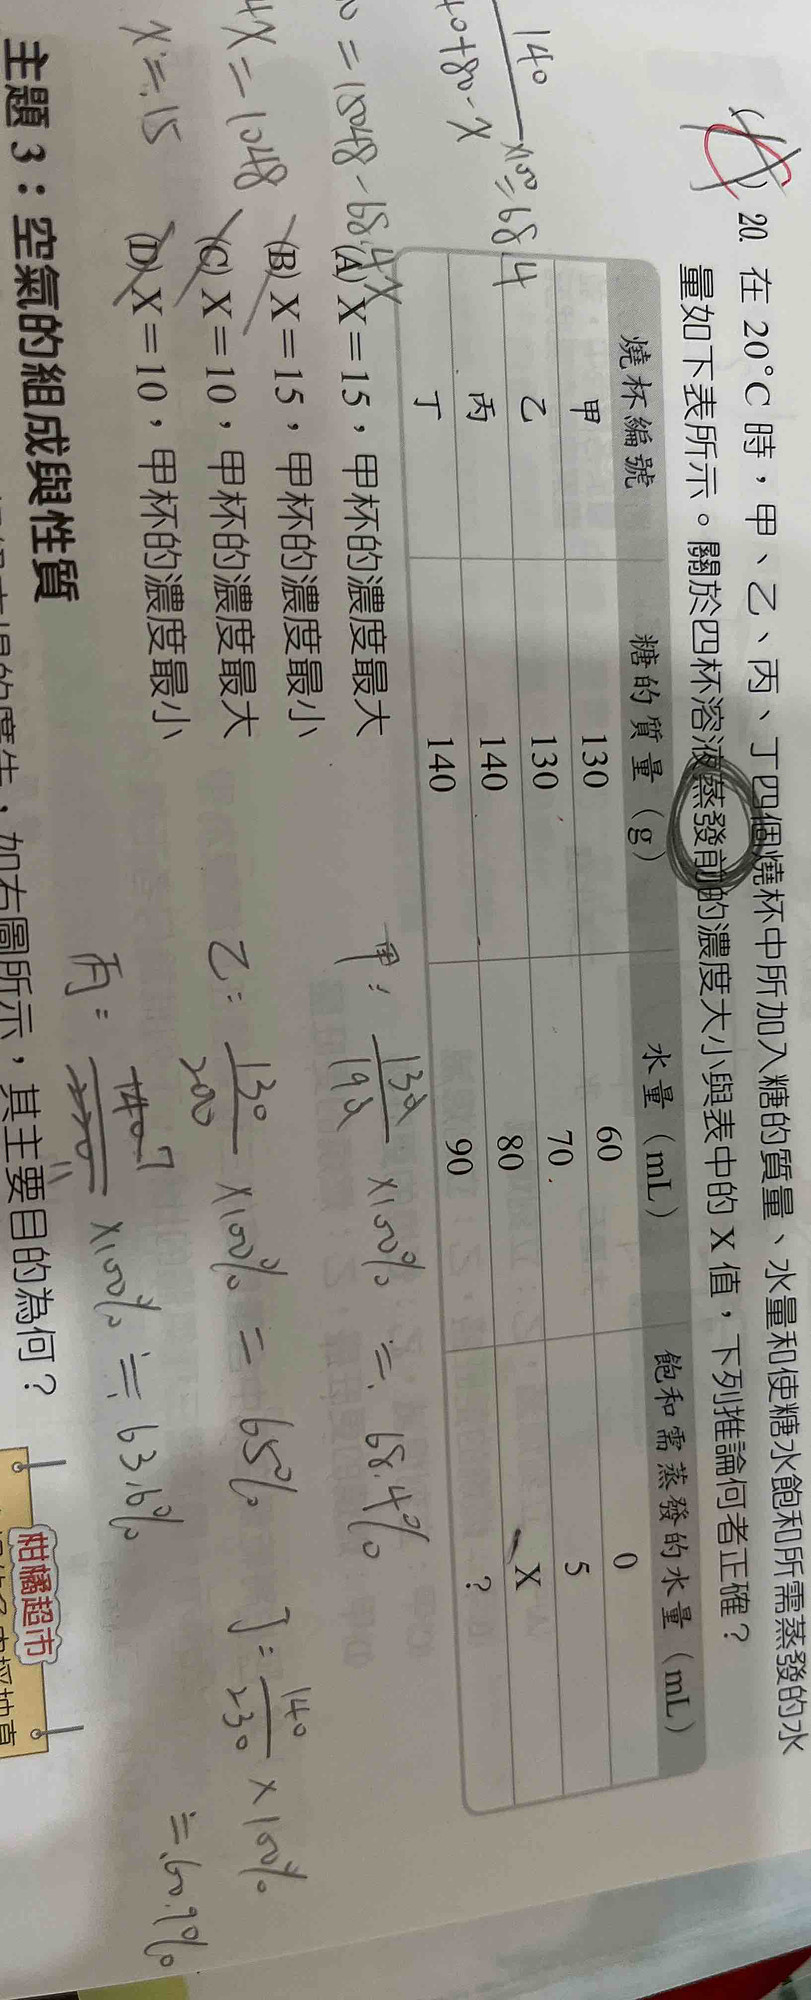 20. 在 20°C 時，甲、乙、丙、丁四個燒杯中所加入糖的質量、水量和使糖水飽和所需蒸發的水
量如下表所示。關於四杯溶液蒸發前的濃度大小與表中的 X 值，下列推論何者正確？
燒杯編號 糖的質量（g） 水量（mL） 飽和需蒸發的水量（mL）
甲 130 60 0
乙 130 70 5
丙 140 80 X
丁 140 90 ?
(A) X＝15，甲杯的濃度最大
(B) X＝15，甲杯的濃度最小
(C) X＝10，甲杯的濃度最大
(D) X＝10，甲杯的濃度最小
140
40+80-X
×100≒68.4
0=15048-68.4X
4X=1048
X≒15
甲: 130
190
×100% ≒ 68.4%
乙: 130
200
×100% = 65%
丙:
×100% ≒ 63.6%
丁: 140
230
×100%
≒60.9%
主題 3：空氣的組成與性質
，如右圖所示，其主要目的為何？
柑橘超市